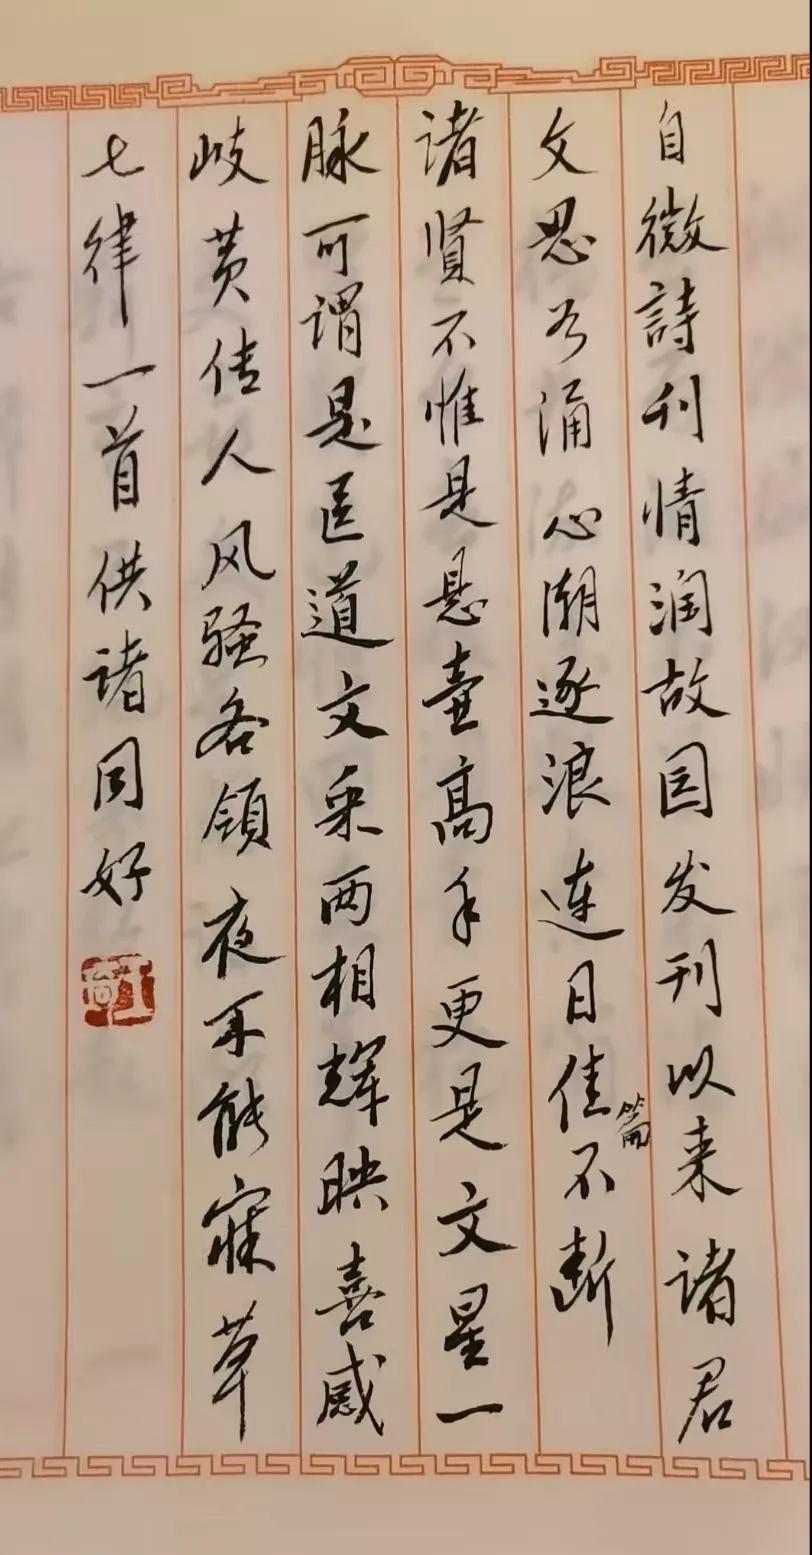 自微詩刊情润故园发刊以来诸君
文思若涌心潮逐浪连日佳篇不断
诸贤不惟是悬壶高手更是文星一
脉可谓是医道文采两相辉映喜感
岐黄传人风骚各领夜不能寐草
七律一首供诸同好